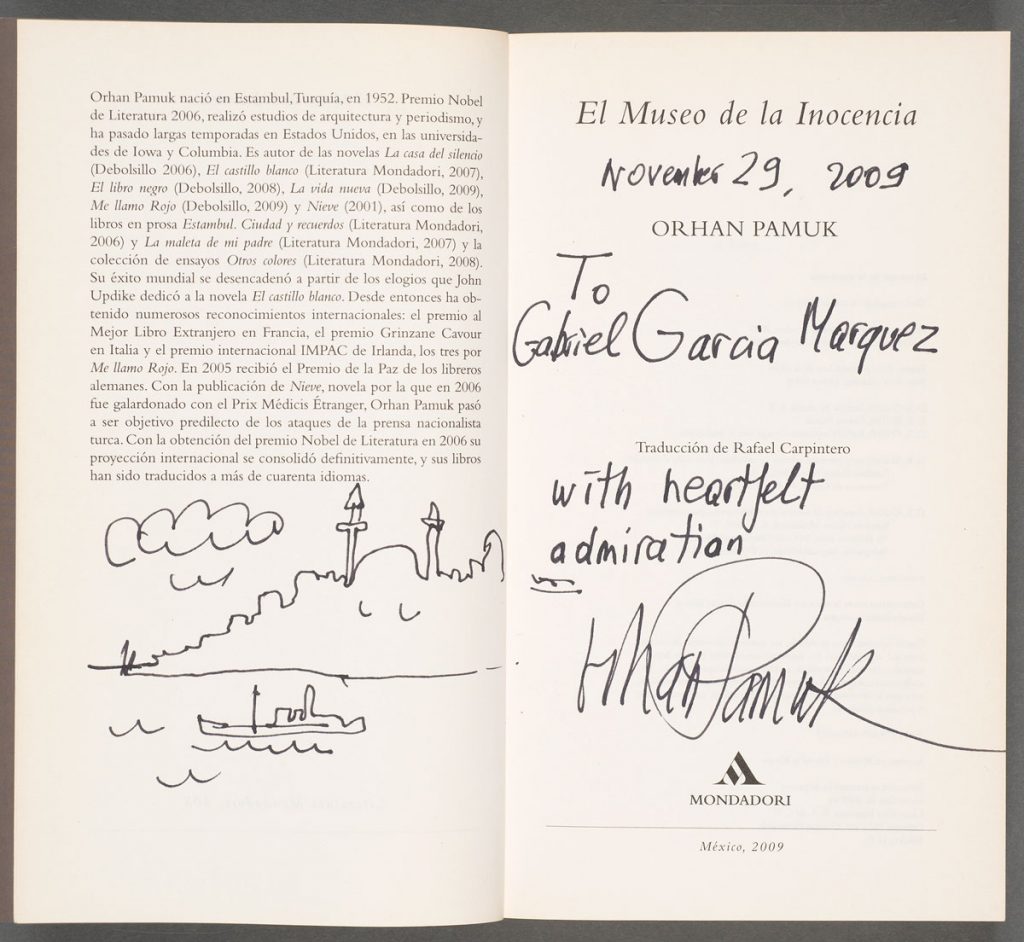 Orhan Pamuk nació en Estambul, Turquía, en 1952. Premio Nobel
de Literatura 2006, realizó estudios de arquitectura y periodismo, y
ha pasado largas temporadas en Estados Unidos, en las universida-
des de Iowa y Columbia. Es autor de las novelas La casa del silencio
(Debolsillo 2006), El castillo blanco (Literatura Mondadori, 2007),
El libro negro (Debolsillo, 2008), La vida nueva (Debolsillo, 2009),
Me llamo Rojo (Debolsillo, 2009) y Nieve (2001), así como de los
libros en prosa Estambul. Ciudad y recuerdos (Literatura Mondadori,
2006) y La maleta de mi padre (Literatura Mondadori, 2007) y la
colección de ensayos Otros colores (Literatura Mondadori, 2008).
Su éxito mundial se desencadenó a partir de los elogios que John
Updike dedicó a la novela El castillo blanco. Desde entonces ha ob-
tenido numerosos reconocimientos internacionales: el premio al
Mejor Libro Extranjero en Francia, el premio Grinzane Cavour
en Italia y el premio internacional IMPAC de Irlanda, los tres por
Me llamo Rojo. En 2005 recibió el Premio de la Paz de los libreros
alemanes. Con la publicación de Nieve, novela por la que en 2006
fue galardonado con el Prix Médicis Étranger, Orhan Pamuk pasó
a ser objetivo predilecto de los ataques de la prensa nacionalista
turca. Con la obtención del premio Nobel de Literatura en 2006 su
proyección internacional se consolidó definitivamente, y sus libros
han sido traducidos a más de cuarenta idiomas.
El Museo de la Inocencia
November 29, 2009
ORHAN PAMUK
To
Gabriel Garcia Marquez
Traducción de Rafael Carpintero
with heartfelt
admiration
Orhan Pamuk
MONDADORI
México, 2009